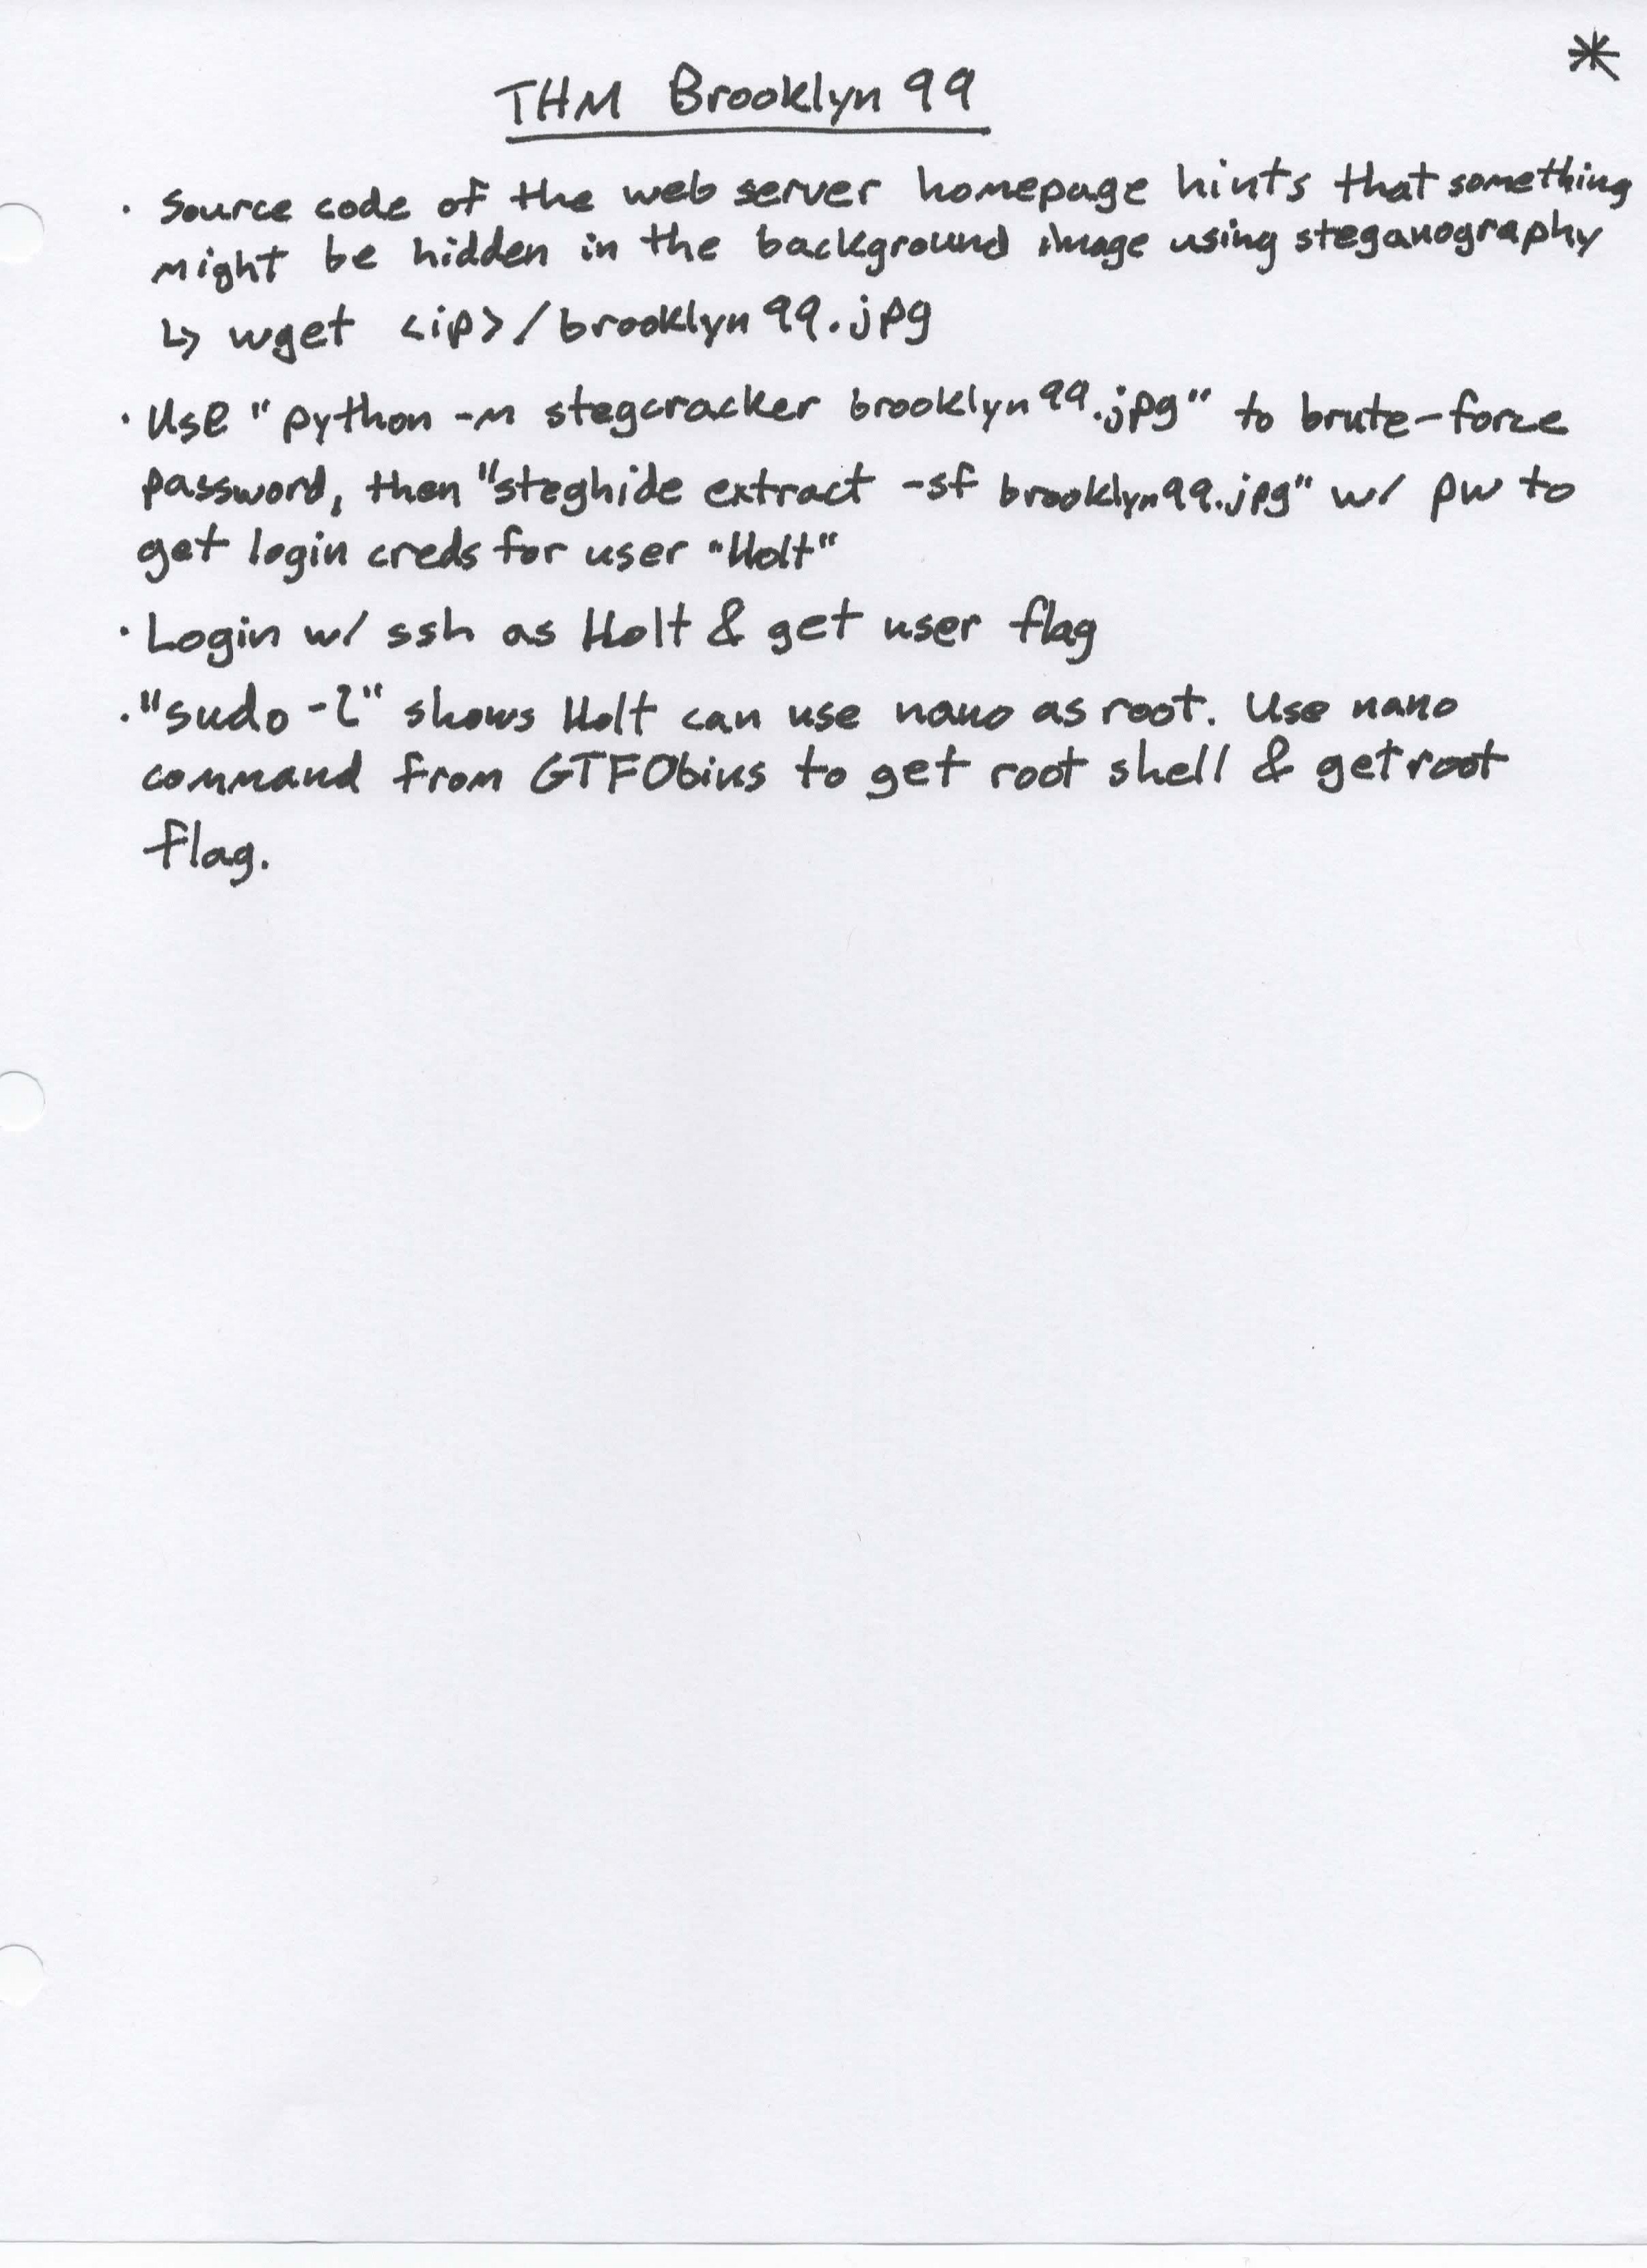 *
THM Brooklyn 99
· Source code of the web server homepage hints that something
might be hidden in the background image using steganography
↳ wget <ip>/brooklyn99.jpg
· Use "python -m stegcracker brooklyn99.jpg" to brute-force
password, then "steghide extract -sf brooklyn99.jpg" w/ pw to
get login creds for user "Holt"
· Login w/ ssh as Holt & get user flag
· "sudo -l" shows Holt can use nano as root. Use nano
command from GTFObins to get root shell & get root
flag.